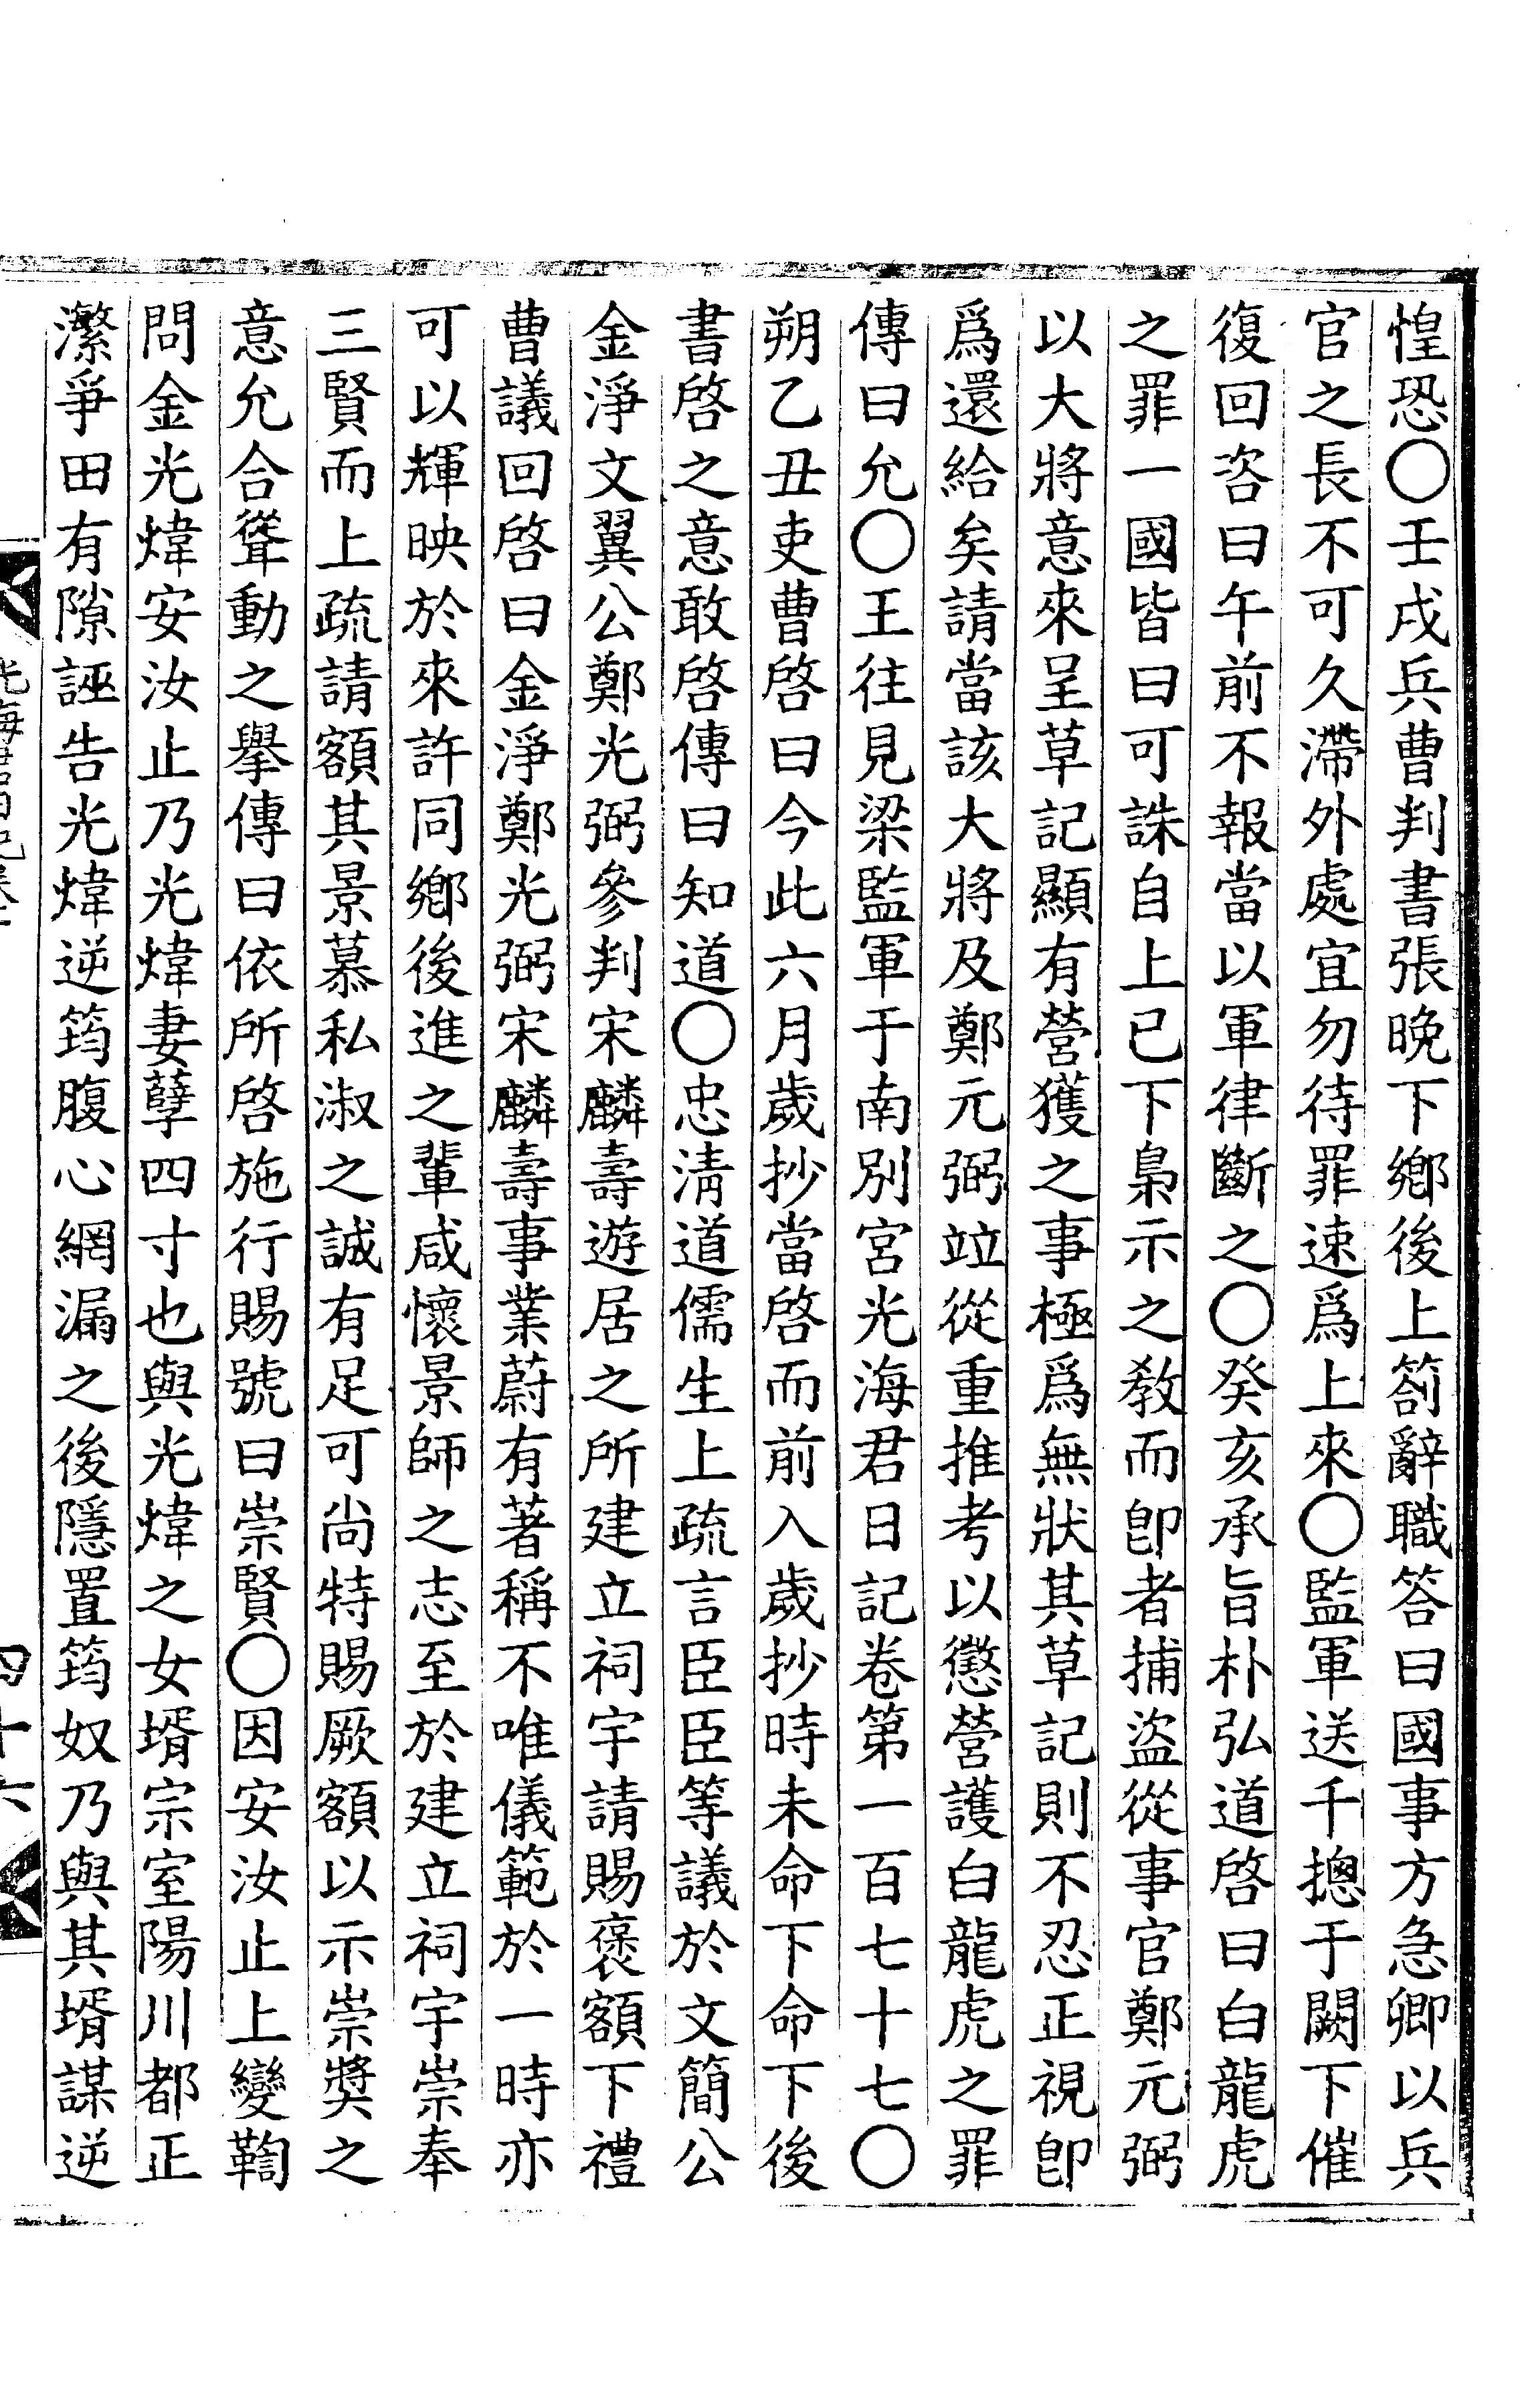 惶恐○壬戌兵曹判書張晚下鄕後上箚辭職答曰國事方急卿以兵
官之長不可久滯外處宜勿待罪速爲上來○監軍送千摠于闕下催
復回咨曰午前不報當以軍律斷之○癸亥承旨朴弘道啓曰白龍虎
之罪一國皆曰可誅自上已下梟示之敎而卽者捕盜從事官鄭元弼
以大將意來呈草記顯有營獲之事極爲無狀其草記則不忍正視卽
爲還給矣請當該大將及鄭元弼竝從重推考以懲營護白龍虎之罪
傳曰允○王往見梁監軍于南別宮光海君日記卷第一百七十七○
朔乙丑吏曹啓曰今此六月歲抄當啓而前入歲抄時未命下命下後
書啓之意敢啓傳曰知道○忠淸道儒生上疏言臣臣等議於文簡公
金淨文翼公鄭光弼參判宋麟壽遊居之所建立祠宇請賜褒額下禮
曹議回啓曰金淨鄭光弼宋麟壽事業蔚有著稱不唯儀範於一時亦
可以輝映於來許同鄕後進之輩咸懷景師之志至於建立祠宇崇奉
三賢而上疏請額其景慕私淑之誠有足可尙特賜厥額以示崇奬之
意允合聳動之擧傳曰依所啓施行賜號曰崇賢○因安汝止上變鞫
問金光煒安汝止乃光煒妻孽四寸也與光煒之女壻宗室陽川都正
瀿爭田有隙誣告光煒逆筠腹心網漏之後隱置筠奴乃與其壻謀逆
光海君日記卷十
四十六